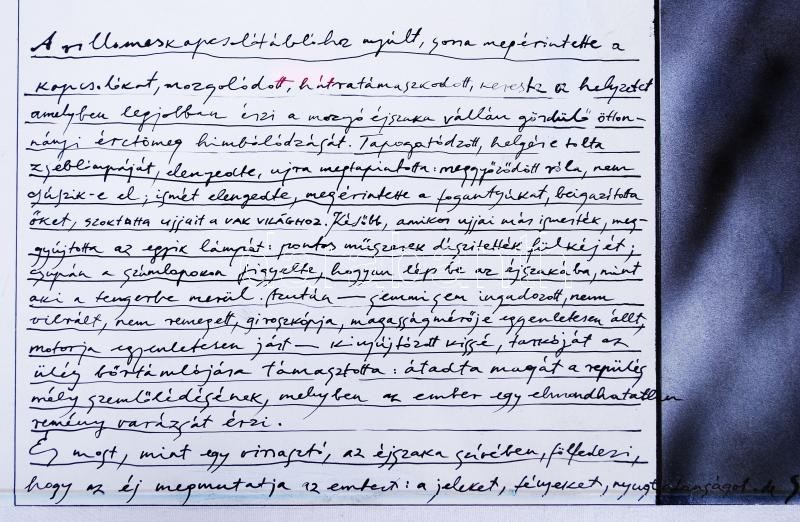 A villamoskapcsolótáblához nyúlt, sorra megérintette a
kapcsolókat, mozgolódott, hátratámaszkodott, kereste a helyzetet
amelyben legjobban érzi a mozgó éjszaka vállán gördülő ötton-
nányi érctömeg himbálódzását. Tapogatódzott, helyére tolta
zseblámpáját, elengedte, ujra megtapintotta: meggyőződött róla, nem
csúszik-e el; ismét elengedte, megérintette a fogantyúkat, beigazította
őket, szoktatta ujjait a VAK VILÁGHOZ. Később, amikor ujjai már ismerték, meg-
gyújtotta az egyik lámpát: pontos műszerek díszítették fülkéjét;
csupán a számlapokon figyelte, hogyan lép be az éjszakába, mint
aki a tengerbe merül. Azután — semmi sem ingadozott, nem
vibrált, nem remegett, giroszkópja, magasságmérője egyenletesen állt,
motorja egyenletesen járt — kinyújtózott kissé, tarkóját az
ülés bőrtámlájára támasztotta: átadta magát a repülés
mély szemlélődésének, melyben az ember egy elmondhatatlan
remény varázsát érzi.
És most, mint egy virrasztó, az éjszaka szívében, fölfedezi,
hogy az éj megmutatja az embert: a jeleket, fényeket, nyugtalanságot. de